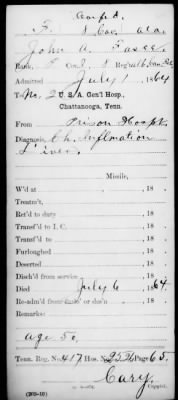 F. 8 Cav. Ala.
John A.
Rank, P Co. Reg't
Admitted July 1 1864
To No. 2 U. S. A. Gen'l Hosp.,
Chattanooga, Tenn.
From Prison Hospt.
Diagnosis, Ch. Inflmation
Liver
Missile,
W'd at , 18 .
Treatm't,
Ret'd to duty , 18 .
Transf'd to I. C. , 18 .
Transf'd to , 18 .
Furloughed , 18 .
Deserted , 18 .
Disch'd from service , 18 .
Died July 6 , 1864.
Re-adm'd from furlo' or des'n , 18 .
Remarks:
age 50.
Tenn. Reg. No. 417 Hos. No. Page 65.
Cary.
Copyist.